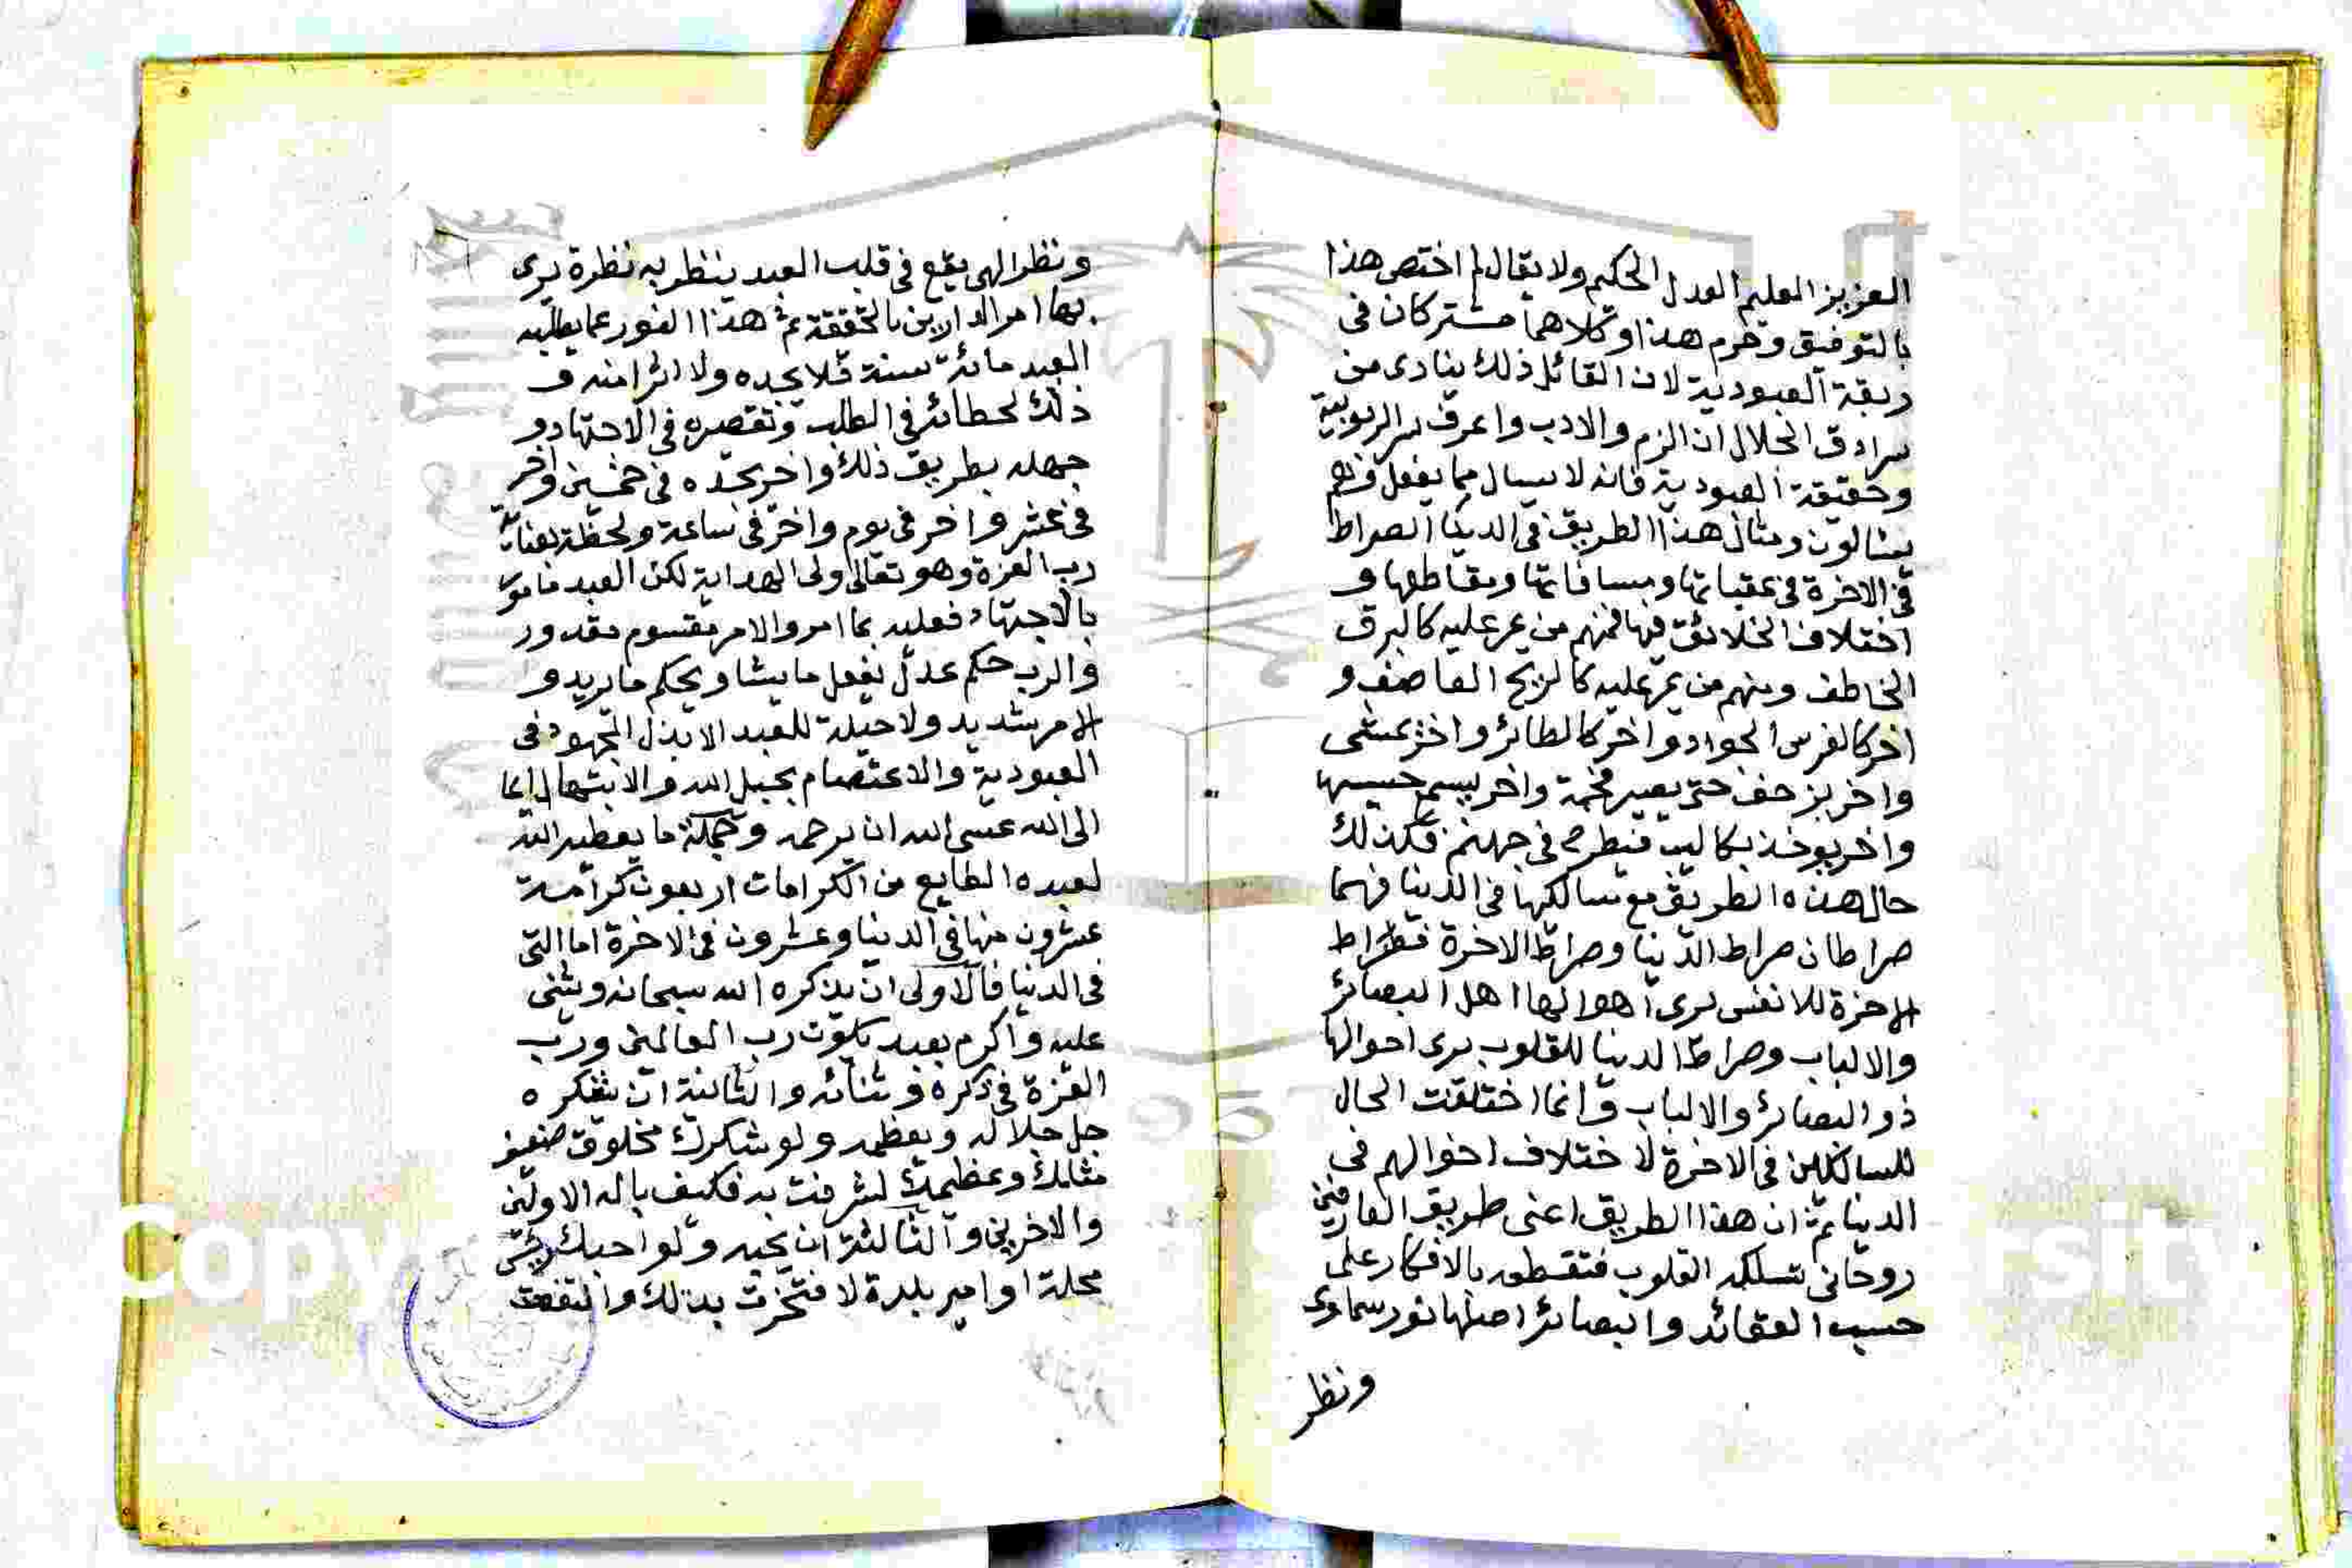 العزيز العليم العدل الحكيم ولا يقال لم اختص هذا
بالتوفيق وحرم هذا وكلاهما مشتركان في
ربقة العبودية لان القائل ذلك ينادى من
سرادق الجلال ان الزم والادب واعرف سر الربوبية
وحقيقة العبودية فانه لا يسال مما يفعل وهم
يسالون ومثال هذا الطريق في الدنيا الصراط
في الاخرة في عقباتها ومسافاتها ومقاطعها و
اختلاف الخلائق فيها فمنهم من يمر عليه كالبرق
الخاطف ومنهم من يمر عليه كالريح العاصف و
اخر كالفرس الجواد واخر كالطائر واخر يمشى
واخر يزحف حتى يصير فحمة واخر يسمع حسيسها
واخر يوخذ بكاليب فيطرح في جهنم فكذلك
حال هذه الطريق مع سالكها في الدنيا فهما
صراطان صراط الدنيا وصراط الاخرة فصراط
الاخرة للانفس يرى اهوالها اهل البصائر
والالباب وصراط الدنيا للقلوب يرى احوالها
ذو البصائر والالباب وانما اختلفت الحال
للسالكين في الاخرة لاختلاف احوالهم في
الدنيا ثم ان هذا الطريق اعنى طريق العارفين
روحاني تسلكه القلوب فتقطعه بالافكار على
حسب العقائد والبصائر اصلها نور سماوى
ونظر
ونظر الهى يقع في قلب العبد ينظر به نظرة يرى
بها امر الدارين بالحقيقة ثم هذا النور عما يطلبه
العبد مائة سنة فلا يجده ولا اثرا منه و
ذلك لخطائه في الطلب وتقصيره في الاجتهاد و
جهله بطريق ذلك واخر يجده في خمسين واخر
في عشر واخر في يوم واخر في ساعة ولحظة بعناية
رب العزة وهو تعالى ولى الهداية لكن العبد مامور
بالاجتهاد فعليه بما امر والامر مقسوم مقدور
والرب حكم عدل يفعل ما يشا ويحكم ما يريد و
الامر شديد ولا حيلة للعبد الا بذل المجهود في
العبودية والاعتصام بحبل الله والابتهال دائما
الى الله عسى الله ان يرحمه وجملة ما يعطيه الله
لعبده الطايع من الكرامات اربعون كرامة
عشرون منها في الدنيا وعشرون في الاخرة اما التى
في الدنيا فالاولى ان يذكره الله سبحانه ويثنى
عليه واكرم بعبد يكون رب العالمين ورب
العزة في ذكره وثنائه والثانية ان يشكره
جل جلاله ويعظمه ولو شكرك مخلوق ضعيف
مثلك وعظمك لشرفت به فكيف باله الاولين
والاخرين والثالثة ان يحبه ولو احبك رئيس
محلة او امير بلدة لافتخرت بذلك وانتفعت